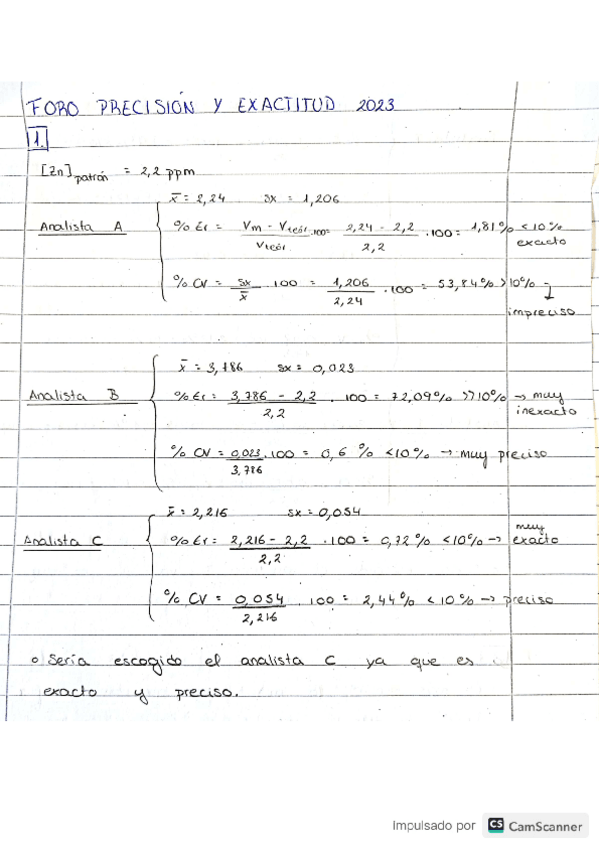 FORO PRECISIÓN Y EXACTITUD 2023
1.
[Zn]patrón = 2,2 ppm
x̄ = 2,24 sx = 1,206
Analista A % Er = Vm - Vteór / Vteór .100 = 2,24 - 2,2 / 2,2 . 100 = 1,81% < 10%
exacto
% CV = sx / x̄ . 100 = 1,206 / 2,24 . 100 = 53,84% > 10% ↓
impreciso
x̄ = 3,786 sx = 0,023
Analista B % Er = 3,786 - 2,2 / 2,2 . 100 = 72,09% >> 10% → muy
inexacto
% CV = 0,023 / 3,786 . 100 = 0,6 % < 10% → muy preciso
x̄ = 2,216 sx = 0,054
Analista C % Er = 2,216 - 2,2 / 2,2 . 100 = 0,72% < 10% → muy exacto
% CV = 0,054 / 2,216 . 100 = 2,44% < 10% → preciso
o Sería escogido el analista C ya que es
exacto y preciso.
Impulsado por CS CamScanner